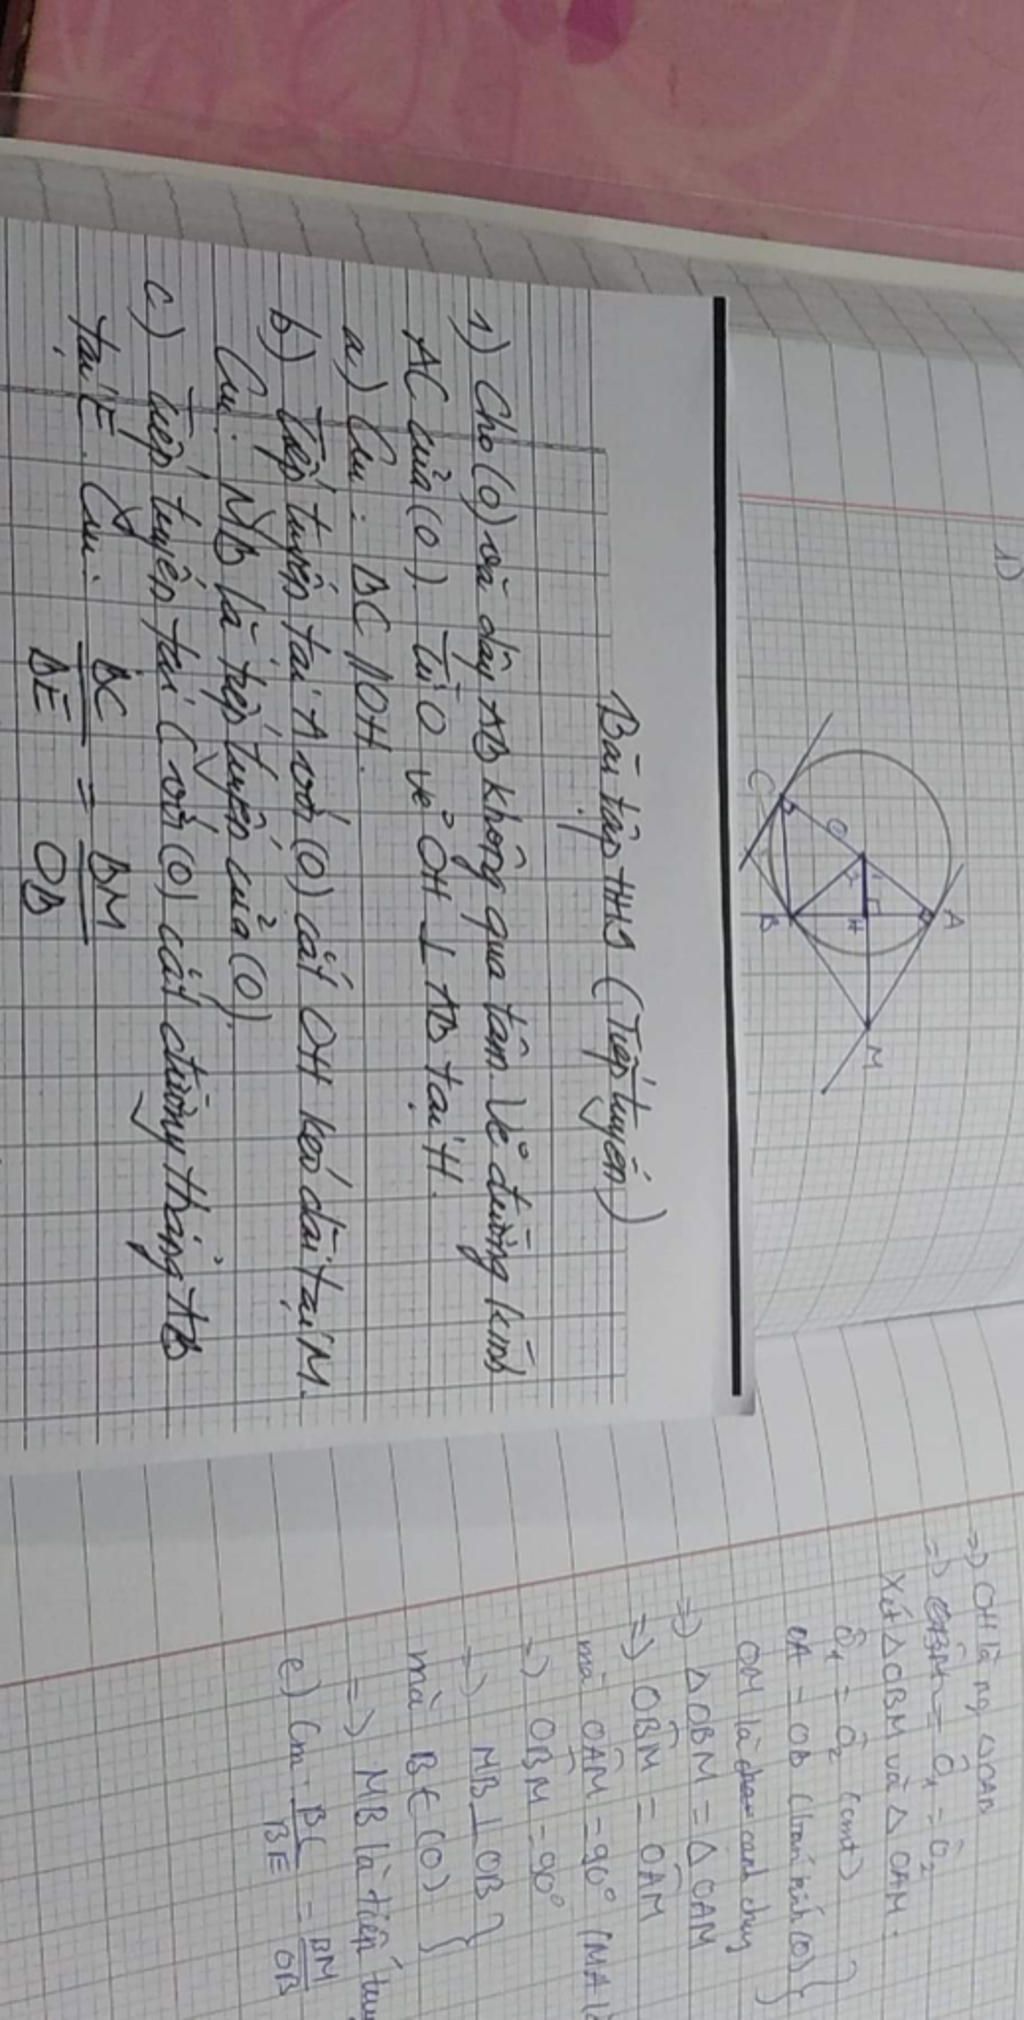 1)
C
O
1
2
H
B
A
M
Bài tập HH9 (Tiếp tuyến)
1) Cho (O) và dây AB không qua tâm. Vẽ đường kính
AC của (O). Từ O vẽ OH ⊥ AB tại H.
a) Cm: BC // OH.
b) Tiếp tuyến tại A với (O) cắt OH kéo dài tại M.
Cm: MB là tiếp tuyến của (O).
c) Tiếp tuyến tại C với (O) cắt đường thẳng AB
tại E. Cm: BC/BE = BM/OB
=> OH là pg ΔOAB
=> = Ô1 = Ô2
Xét ΔOBM và ΔOAM.
Ô1 = Ô2 (cmt)
OA = OB (bán kính (O)) }
OM là cạnh chung
=> ΔOBM = ΔOAM
=> OB̂M = OÂM
mà OÂM = 90° (MA là
=> OB̂M = 90°
=> MB ⊥ OB }
mà B ∈ (O) }
=> MB là tiếp
c) Cm: BC/BE = BM/OB